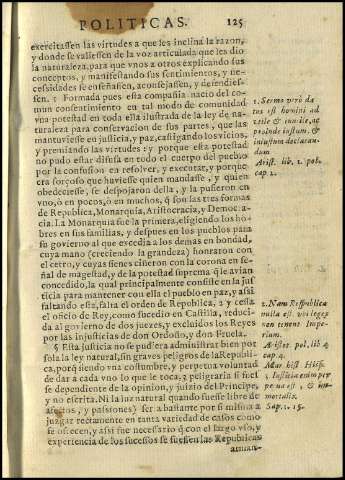 POLITICAS. 125
exercitassen las virtudes a que les inclina la razon,
y donde se valiessen de la voz articulada que les dio
la naturaleza, para que vnos a otros explicando sus
conceptos, y manifestando sus sentimientos, y ne-
cessidades se enseñassen, aconsejassen, y defendies-
sen. 1 Formada pues esta compañia nacio del co-
mun consentimiento en tal modo de comunidad
vna potestad en toda ella ilustrada de la ley de na-
turaleza para conservacion de sus partes, que las
mantuviesse en justicia, y paz, castigando los vicios,
y premiando las virtudes: y porque esta potestad
no pudo estar difusa en todo el cuerpo del pueblo
por la confusion en resolver, y executar, y porque
era forçoso que huviesse quien mandasse, y quien
obedeciesse, se despojaron della, y la pusieron en
vno, ò en pocos, ò en muchos, q̃ son las tres formas
de Republica, Monarquia, Aristocracia, y Democra-
cia. La Monarquia fue la primera, eligiendo los hõ-
bres en sus familias, y despues en los pueblos para
su govierno al que excedia a los demas en bondad,
cuya mano (creciendo la grandeza) honraron con
el cetro, y cuyas sienes ciñeron con la corona en se-
ñal de magestad, y de la potestad suprema q̃ le avian
concedido, la qual principalmente consiste en la jus
ticia para mantener con ella el pueblo en paz, y assi
faltando esta, falta el orden de Republica, 2 y cessa
el oficio de Rey, como sucedio en Castilla, reduci-
da al govierno de dos juezes, y excluidos los Reyes
por las injusticias de don Ordoño, y don Fruela.
¶ Esta justicia no se pudiera administrar bien por
sola la ley natural, sin graves peligros de la Republi-
ca, porq̃ siendo vna constante, y perpetua voluntad
de dar a cada vno lo que le toca, 3 peligraria si fuel
se dependiente de la opinion, y juizio del Principe,
y no escrita. Ni la luz natural quando fuesse libre de
afectos, y passiones) seria bastante por si misma a
juzgar rectamente en tanta variedad de casos como
se ofrecen, y assi fue necessario q̃ con el largo vso, y
experiencia de los sucessos se fuessen las Republicas
arman-
1. Sermo verò da
tus est homini ad
vtile & inutile, ac
proinde iustum, &
iniustum declaran-
dum.
Arist. lib. 1. pol.
cap. 2.
2. Nam Respublica
nulla est vbi leges
non tenent Impe-
rium.
Aristot. pol. lib 4
cap. 4.
Mar. hist Hisp.
3. Iustitia enim per
petua est, & im-
mortalis.
Sap. 1. 15.